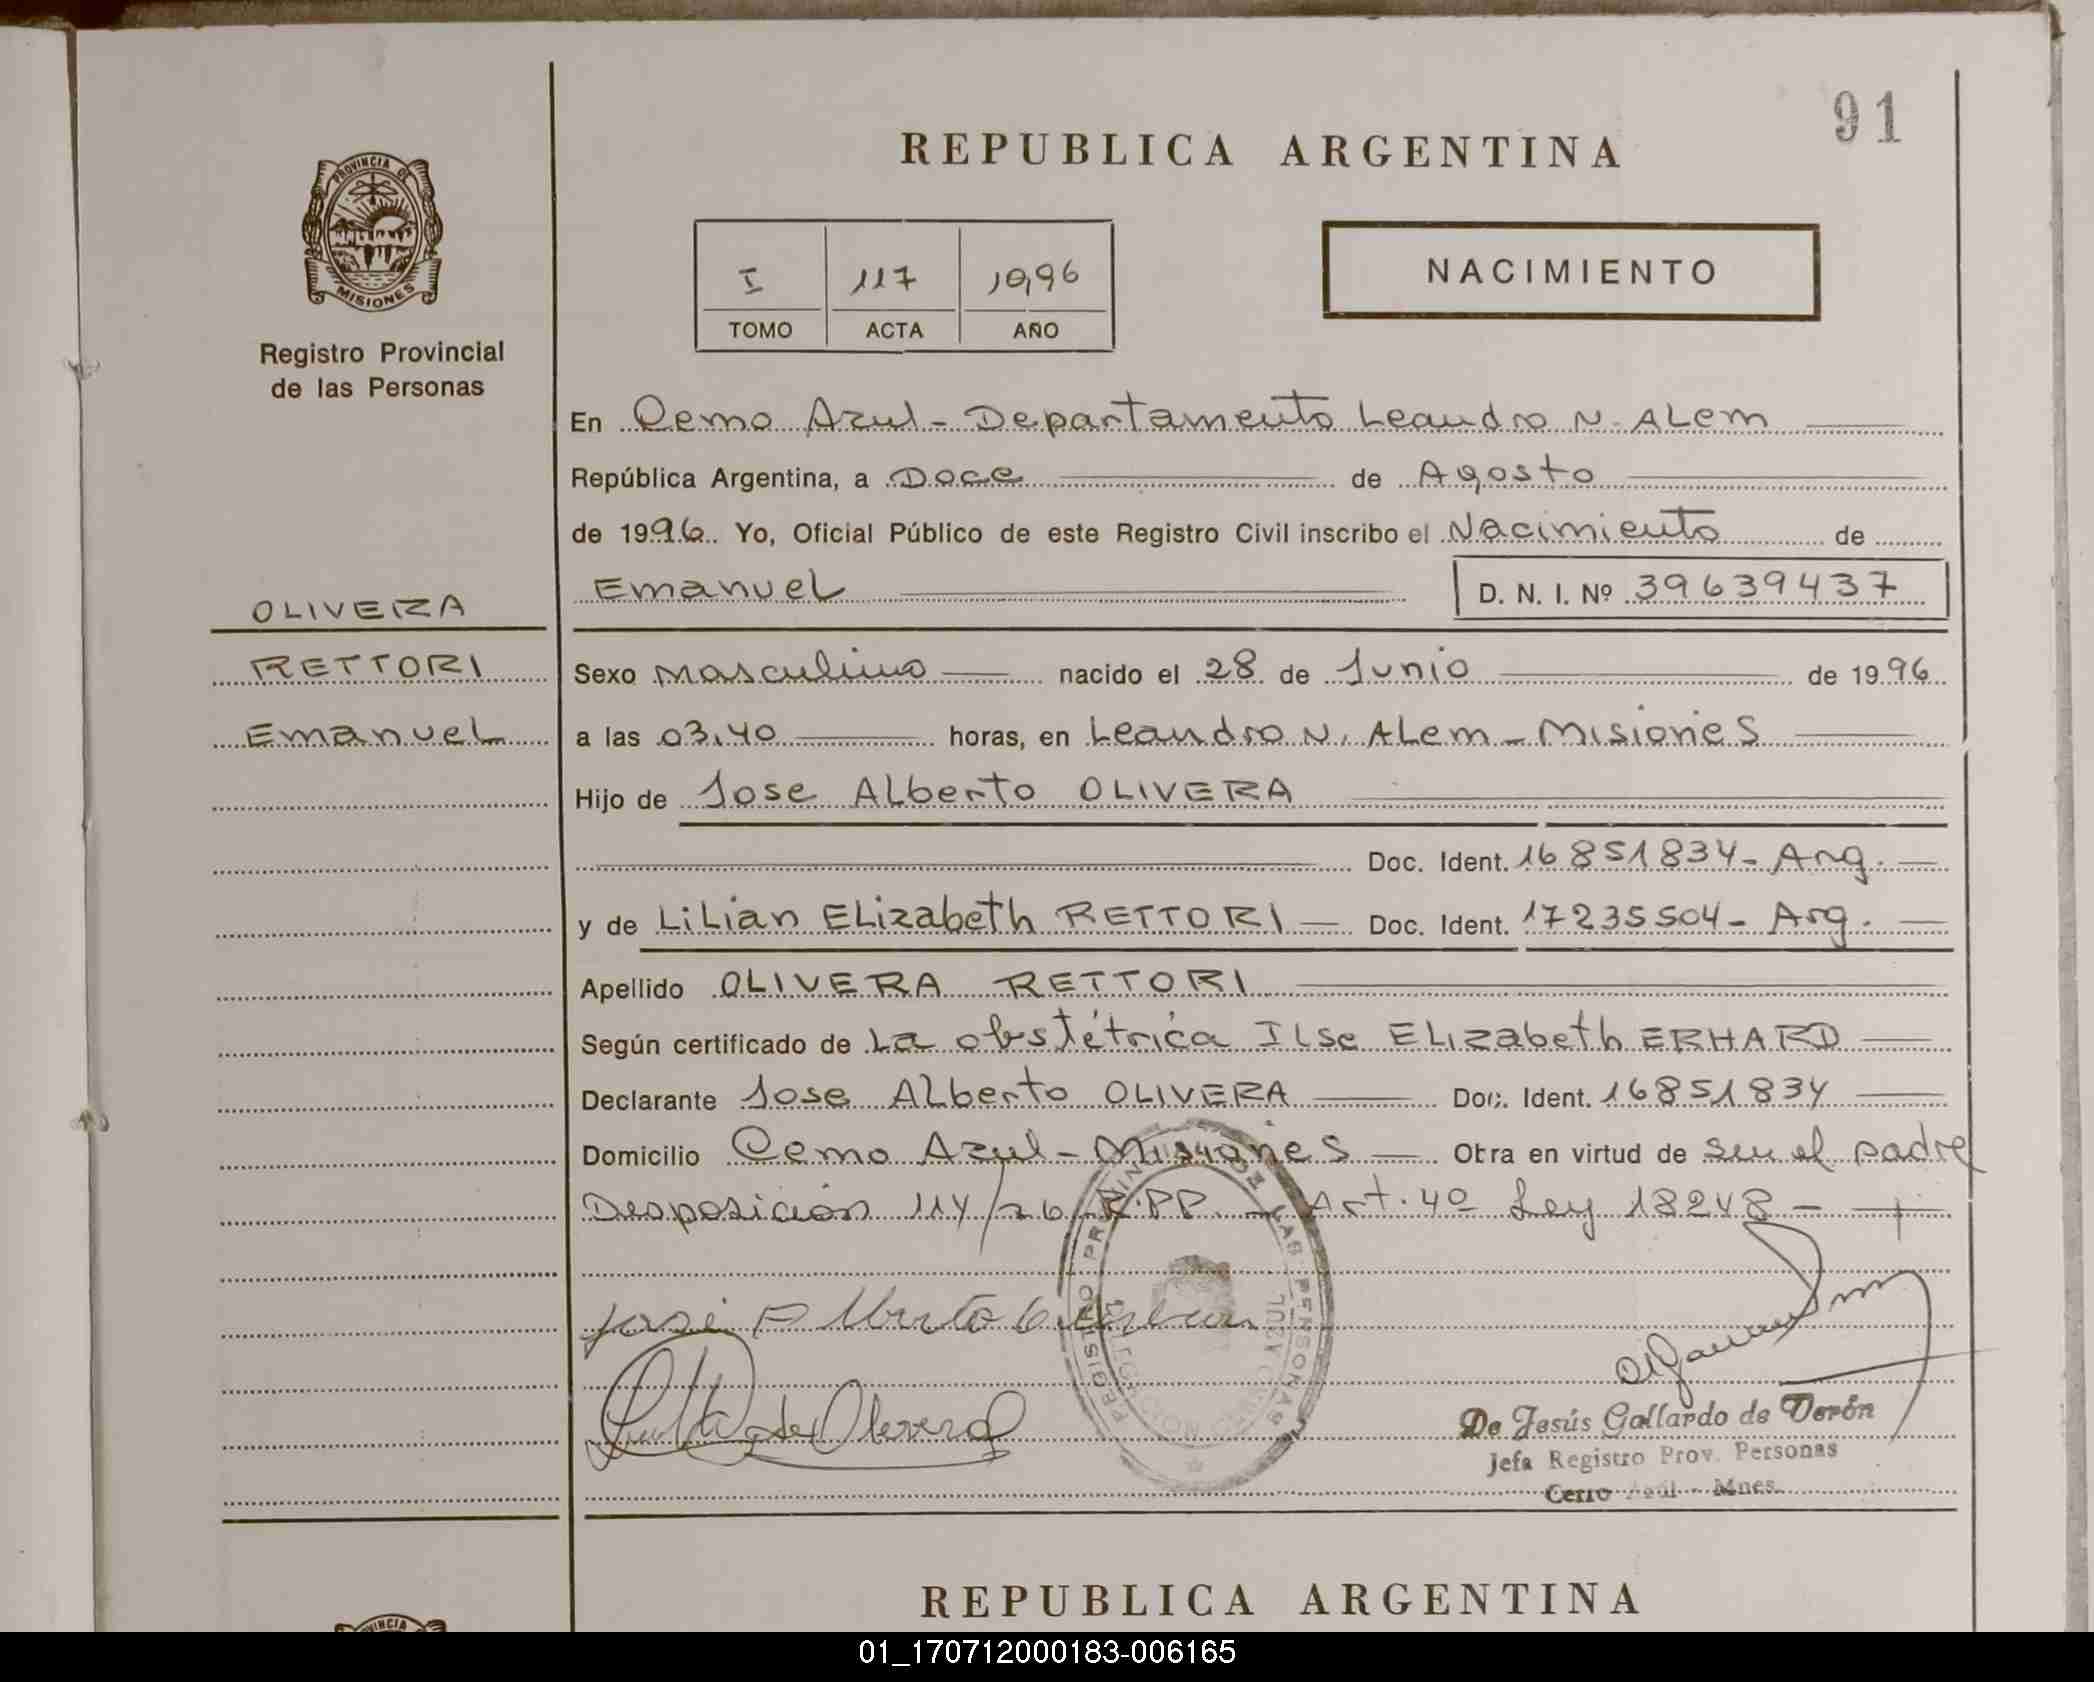 91
REPUBLICA ARGENTINA
PROVINCIA DE
MISIONES
Registro Provincial
de las Personas
I 117 1996
TOMO ACTA AÑO
NACIMIENTO
En Cerro Azul - Departamento Leandro N. Alem
República Argentina, a Doce de Agosto
de 1996. Yo, Oficial Público de este Registro Civil inscribo el Nacimiento de
Emanuel D. N. I. Nº 39639437
OLIVERA
RETTORI
Emanuel
Sexo masculino nacido el 28 de Junio de 1996
a las 03.40 horas, en Leandro N. Alem - Misiones
Hijo de Jose Alberto OLIVERA
Doc. Ident. 16851834 - Arg.
y de Lilian Elizabeth RETTORI Doc. Ident. 17235504 - Arg.
Apellido OLIVERA RETTORI
Según certificado de La obstétrica Ilse Elizabeth ERHARD
Declarante Jose Alberto OLIVERA Doc. Ident. 16851834
Domicilio Cerro Azul - Misiones Obra en virtud de ser el padre
Disposición 114/76 R.PP. - Art. 4º Ley 18248 -
REGISTRO PROVINCIAL DE LAS PERSONAS
CERRO AZUL
José Alberto
De Jesús Gallardo de Verón
Jefa Registro Prov. Personas
Cerro Azul - Mnes.
REPUBLICA ARGENTINA
01_170712000183-006165